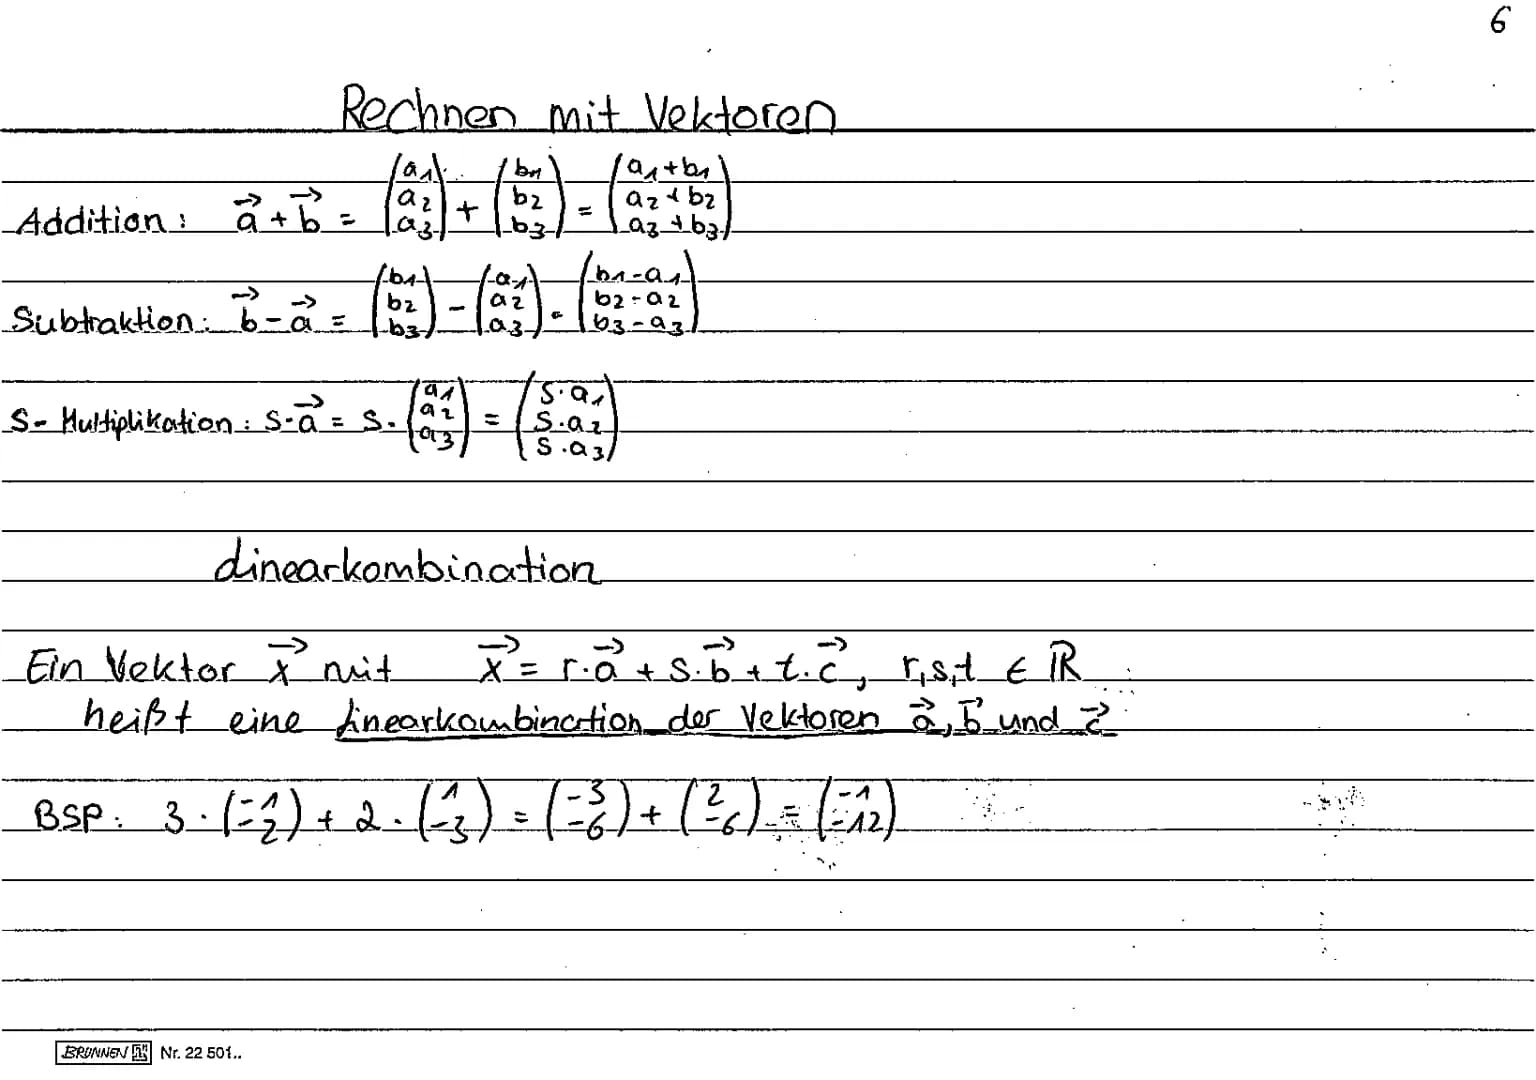 6
Rechnen mit Vektoren
Addition: a⃗ + b⃗ = (a₁ a₂ a₃) + (b₁ b₂ b₃) = (a₁+b₁ a₂+b₂ a₃+b₃)
Subtraktion: b⃗ - a⃗ = (b₁ b₂ b₃) - (a₁ a₂ a₃) = (b₁-a₁ b₂-a₂ b₃-a₃)
S-Multiplikation: s·a⃗ = s·(a₁ a₂ a₃) = (s·a₁ s·a₂ s·a₃)
Linearkombination
Ein Vektor x⃗ mit x⃗ = r·a⃗ + s·b⃗ + t·c⃗, r,s,t ∈ ℝ
heißt eine Linearkombination der Vektoren a⃗, b⃗ und c⃗
BSP: 3·(-1 -2) + 2·(1 -3) = (-3 -6) + (2 -6) = (-1 -12)
BRUNNEN Nr. 22 501..